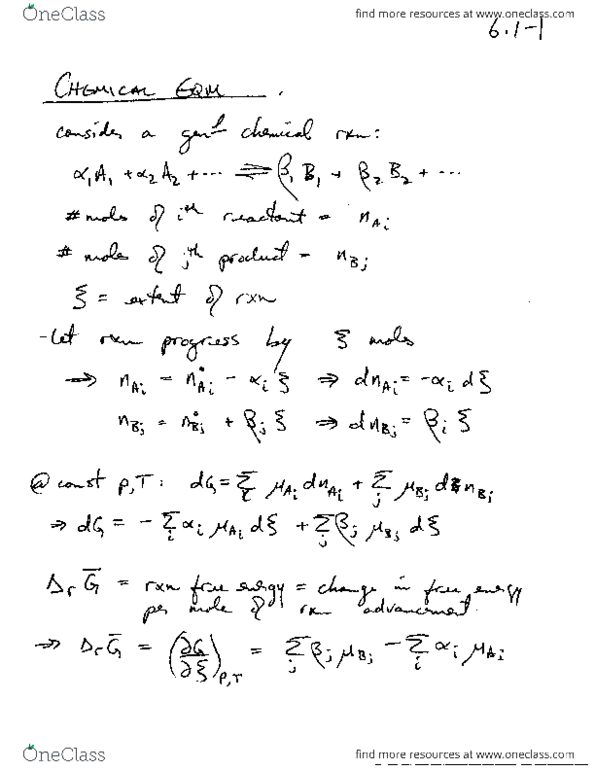 OneClass find more resources at www.oneclass.com
find more resources at www.oneclass.com
6.1-1
CHEMICAL EQM.
consider a gen'l chemical rxn:
α₁A₁ + α₂A₂ + ··· ⇌ β₁B₁ + β₂B₂ + ···
# moles of iᵗʰ reactant = n_Ai
# moles of jᵗʰ product = n_Bj
ξ = extent of rxn
-Let rxn progress by ξ moles
⇒ n_Ai = n°_Ai - αᵢξ ⇒ dn_Ai = -αᵢ dξ
n_Bj = n°_Bj + βⱼξ ⇒ dn_Bj = βⱼ ξ
@ const p,T: dG = Σᵢ μ_Ai dn_Ai + Σⱼ μ_Bj dn_Bj
⇒ dG = - Σᵢ αᵢ μ_Ai dξ + Σⱼ βⱼ μ_Bj dξ
ΔᵣG̅ = rxn free energy = change in free energy
per mole of rxn advancement.
⇒ ΔᵣG̅ = (∂G/∂ξ)_p,T = Σⱼ βⱼ μ_Bj - Σᵢ αᵢ μ_Ai
OneClass find more resources at www.oneclass.com